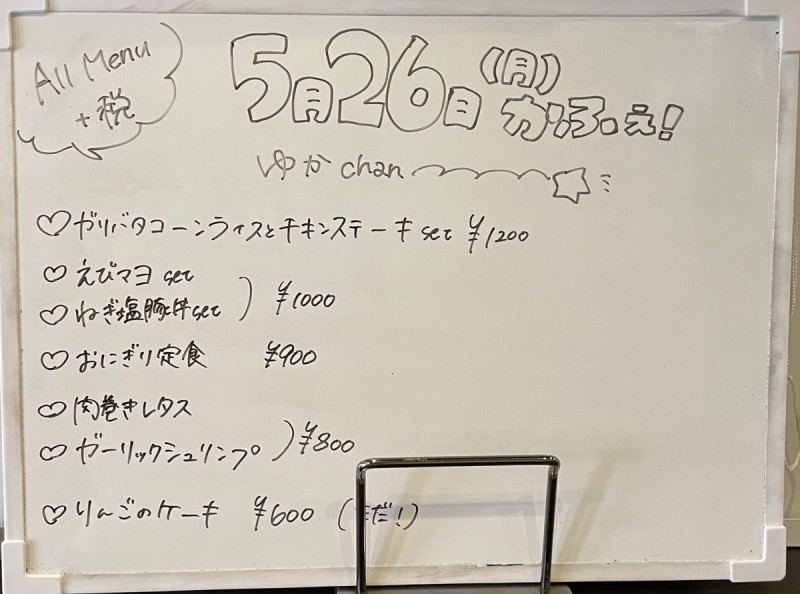 All Menu
+ 税
5月26日(月)
かふぇ!
ゆか chan
ガリバタコーンライスとチキンステーキ set ¥1200
えびマヨ set
ねぎ塩豚丼set ¥1000
おにぎり定食 ¥900
肉巻きレタス
ガーリックシュリンプ ¥800
りんごのケーキ ¥600 (まだ!)